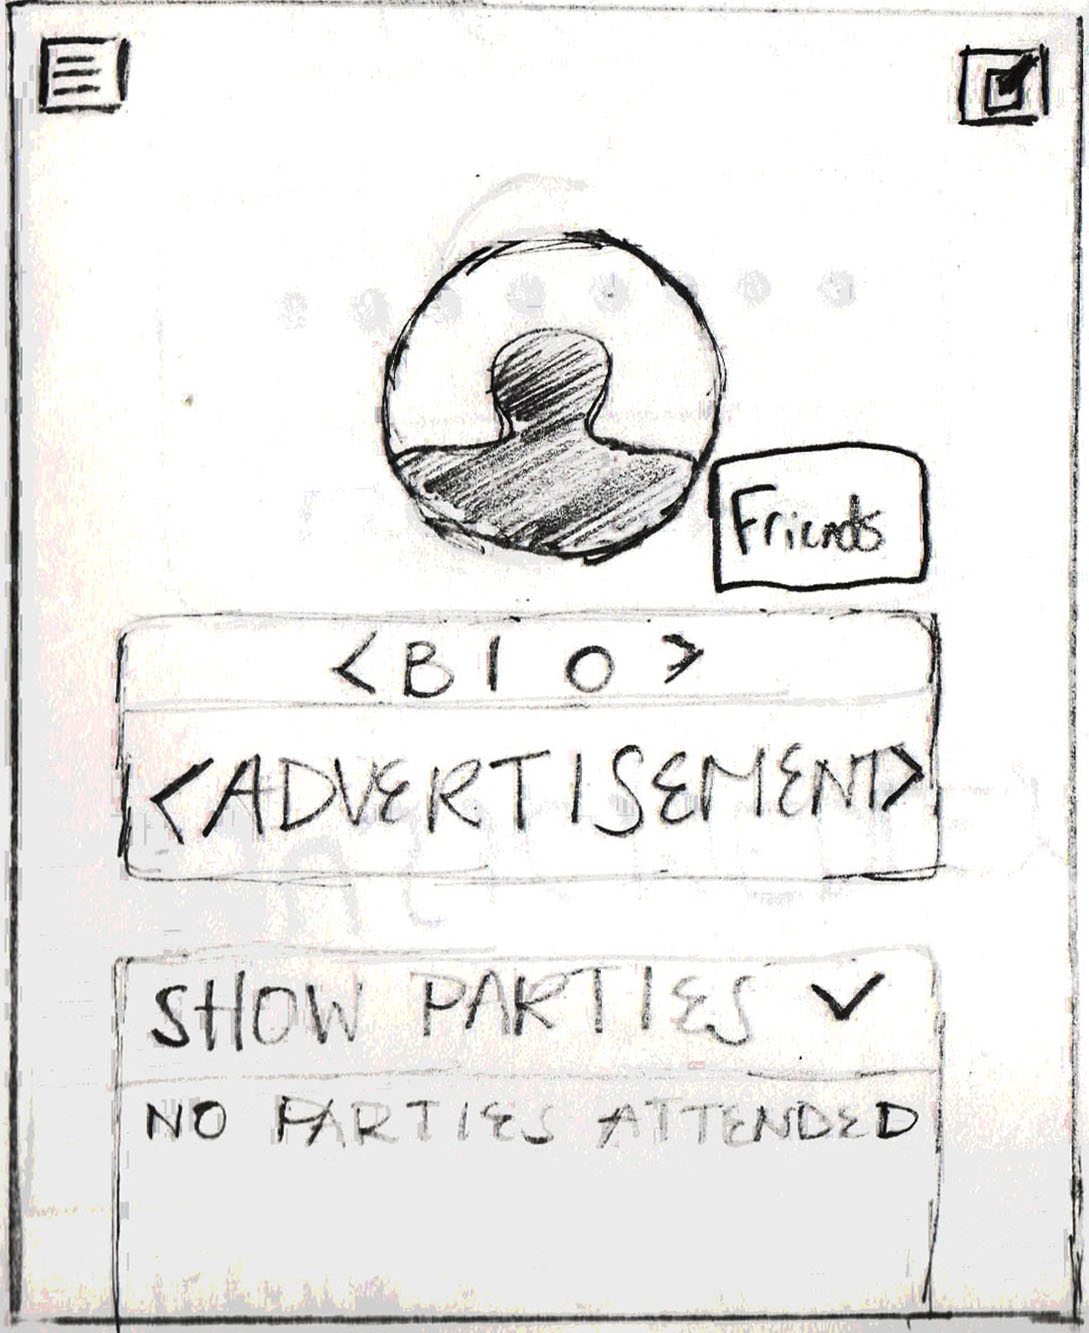 Friends
<BIO>
<ADVERTISEMENT>
SHOW PARTIES
NO PARTIES ATTENDED